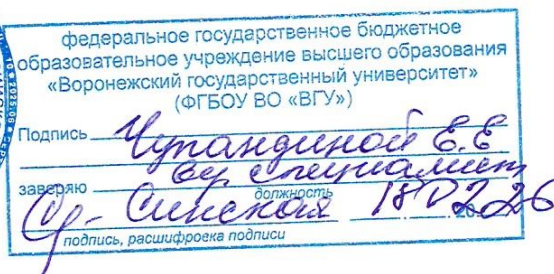 федеральное государственное бюджетное
образовательное учреждение высшего образования
«Воронежский государственный университет»
(ФГБОУ ВО «ВГУ»)
Подпись Чупандиной Е.Е
заверяю вед. специалист
должность
Синская 18 02 2026
подпись, расшифровка подписи